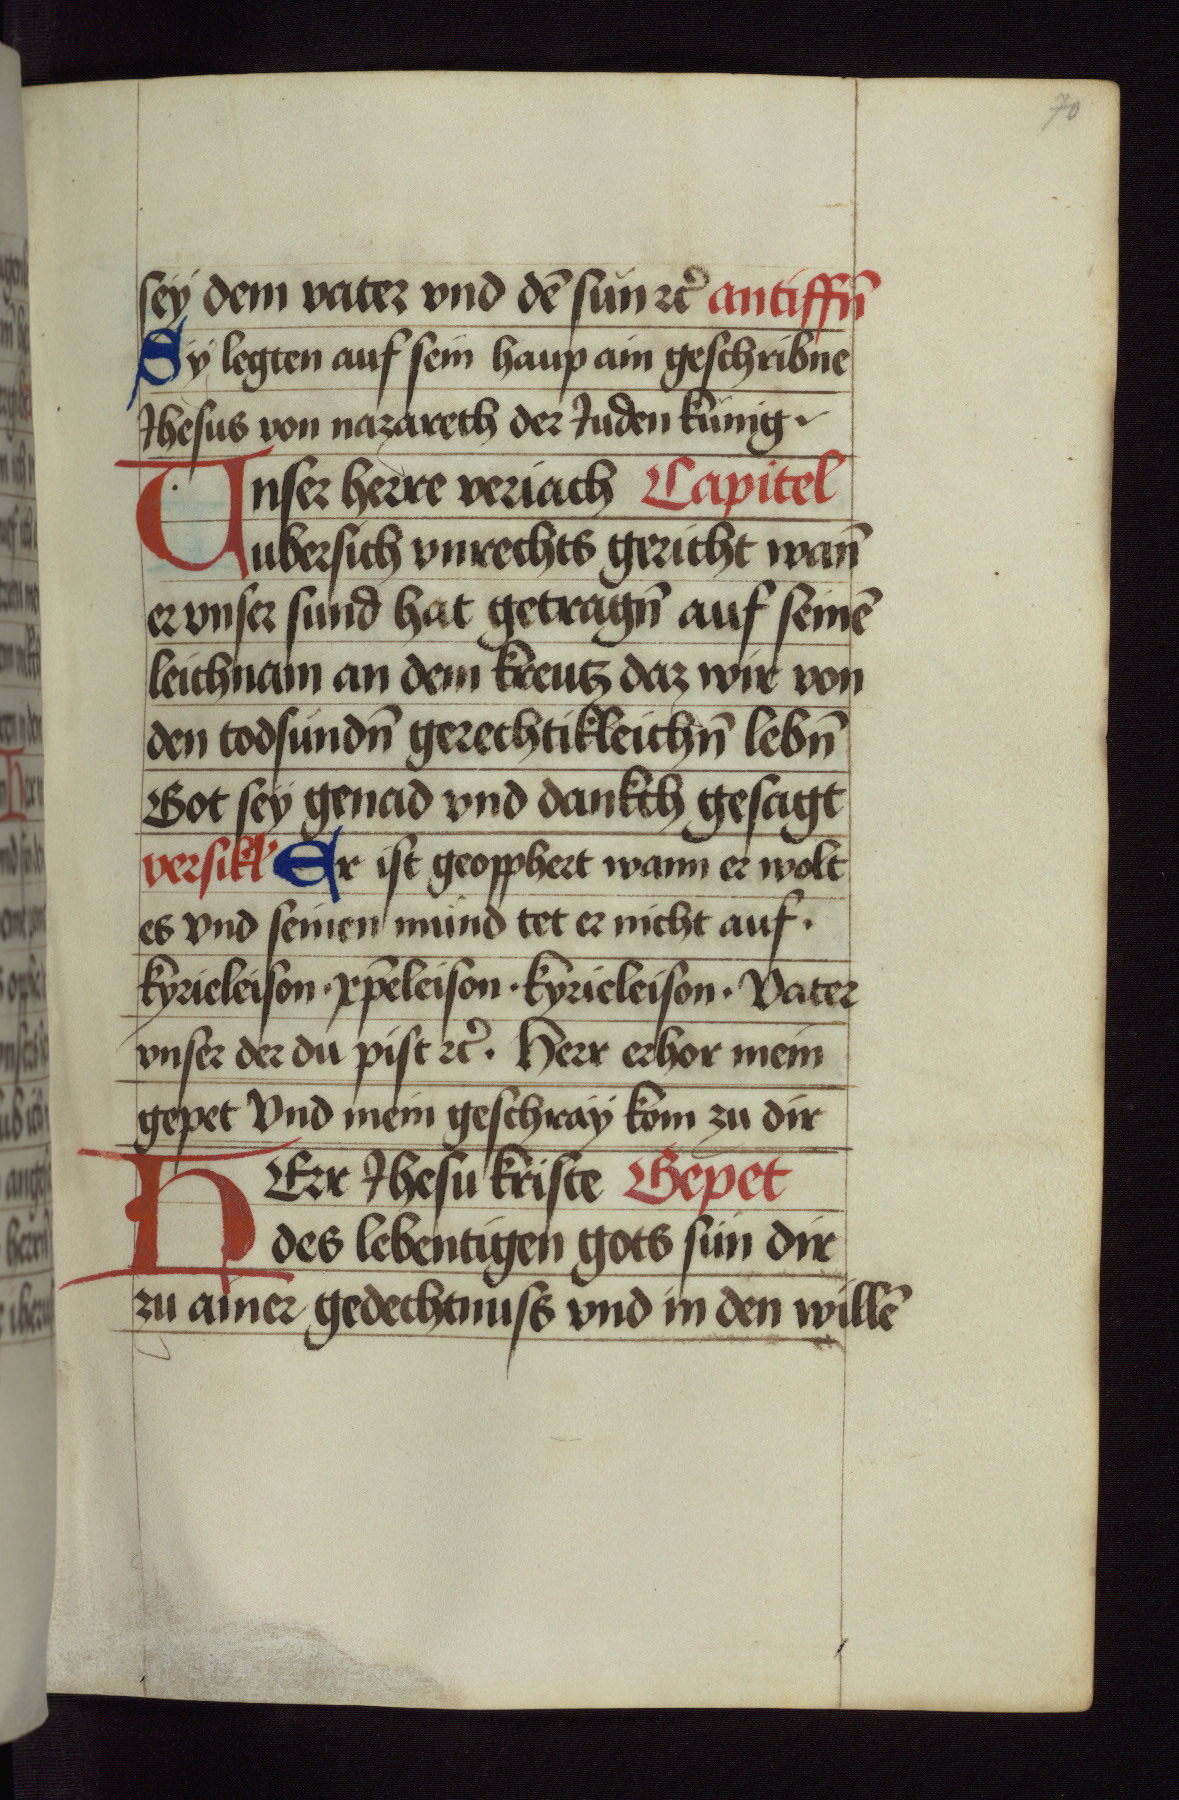 70
sey dem vater vnd dē sün ⁊cꝰ antiffn̄
Sy legten auf sein haup ain geschribne
Jhesus von nazareth der Juden künig ·
Vnser herre veriach Capitel
ubersich vnrechts gericht wañ
er vnser sund hat getragn̄ auf seinē
leichnam an dem kreutz daz wir von
den todsündn̄ gerechtikleichn̄ lebn̄
Got sey genad vnd dankch gesagt
versikl Er ist geopphert wann er wolt
es vnd seinen münd tet er nicht auf ·
kyrieleison · xp̄eleison · kyrieleison · Vater
vnser der du pist ⁊cꝰ · Herr erhor mein
gepet Vnd mein geschray kom zu dir
HErr Jhesu kriste Gepet
des lebentigen gots sün dir
zu ainer gedechtnuss vnd in den willē